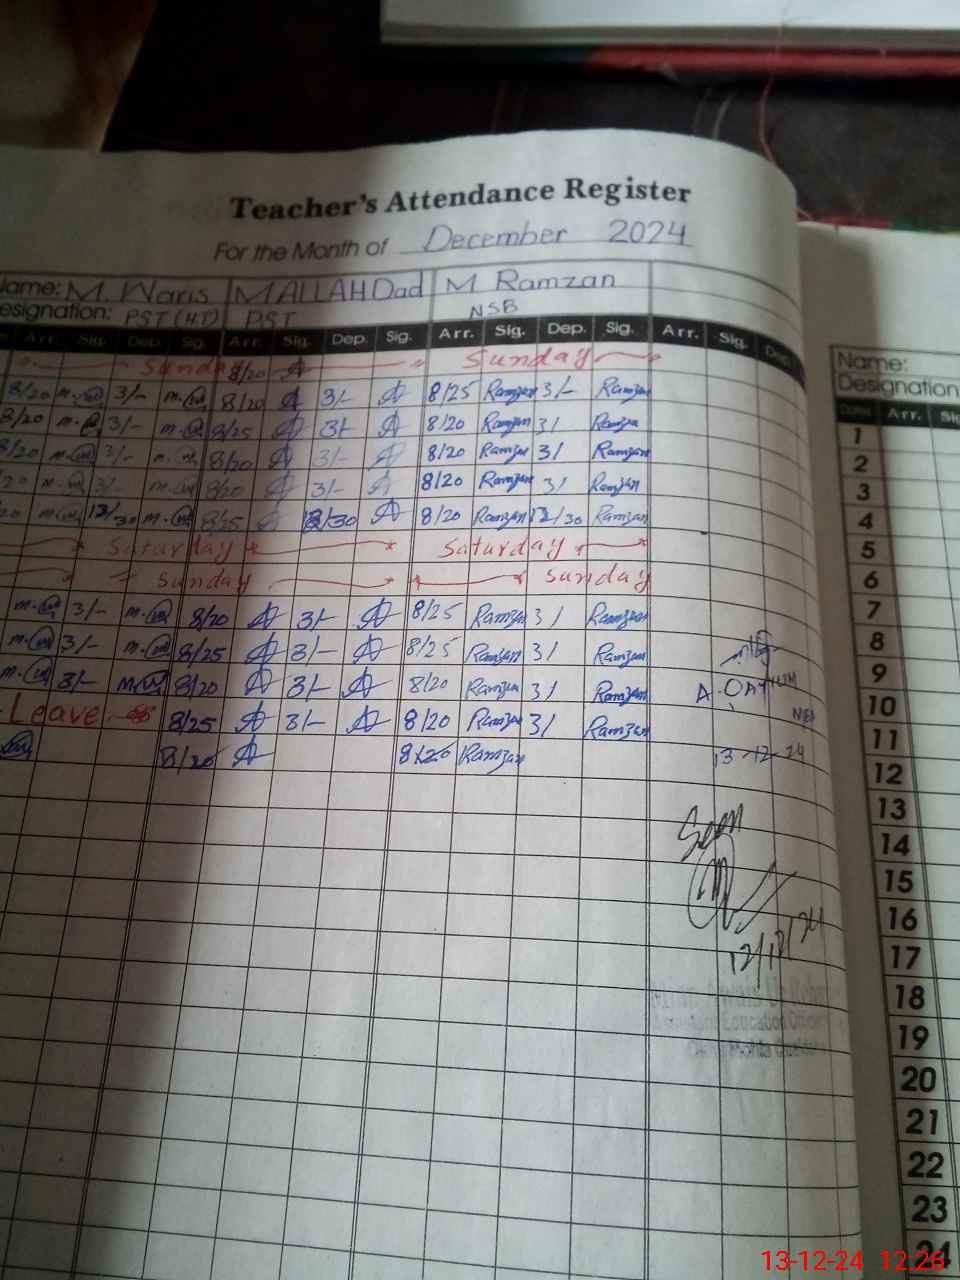 Teacher's Attendance Register
For the Month of December 2024
Name: M. Waris M ALLAH Dad M Ramzan
Designation: PST (H.T) PST NSB
Arr. Sig. Dep. Sig. Arr. Sig. Dep. Sig. Arr. Sig. Dep. Sig. Arr. Sig. Dep.
Sunday 8/20 Sunday
8/20 3/- 8/20 3/- 8/25 Ramzan 3/- Ramzan
8/20 3/- 8/25 3/- 8/20 Ramzan 3/ Ramzan
8/20 3/- 8/20 3/- 8/20 Ramzan 3/ Ramzan
3/- 8/20 3/- 8/20 Ramzan 3/ Ramzan
12/30 8/25 12/30 8/20 Ramzan 12/30 Ramzan
Saturday Saturday
Sunday Sunday
3/- 8/20 3/- 8/25 Ramzan 3/ Ramzan
3/- 8/25 3/- 8/25 Ramzan 3/ Ramzan
3/- 8/20 3/- 8/20 Ramzan 3/ Ramzan
Leave 8/25 3/- 8/20 Ramzan 3/ Ramzan
8/20 8/20 Ramzan
13-12-24
Seen
12/12/24
Assistant Education Officer
Name:
Designation
Dates Arr.
1
2
3
4
5
6
7
8
9
10
11
12
13
14
15
16
17
18
19
20
21
22
23
24
13-12-24 12:26